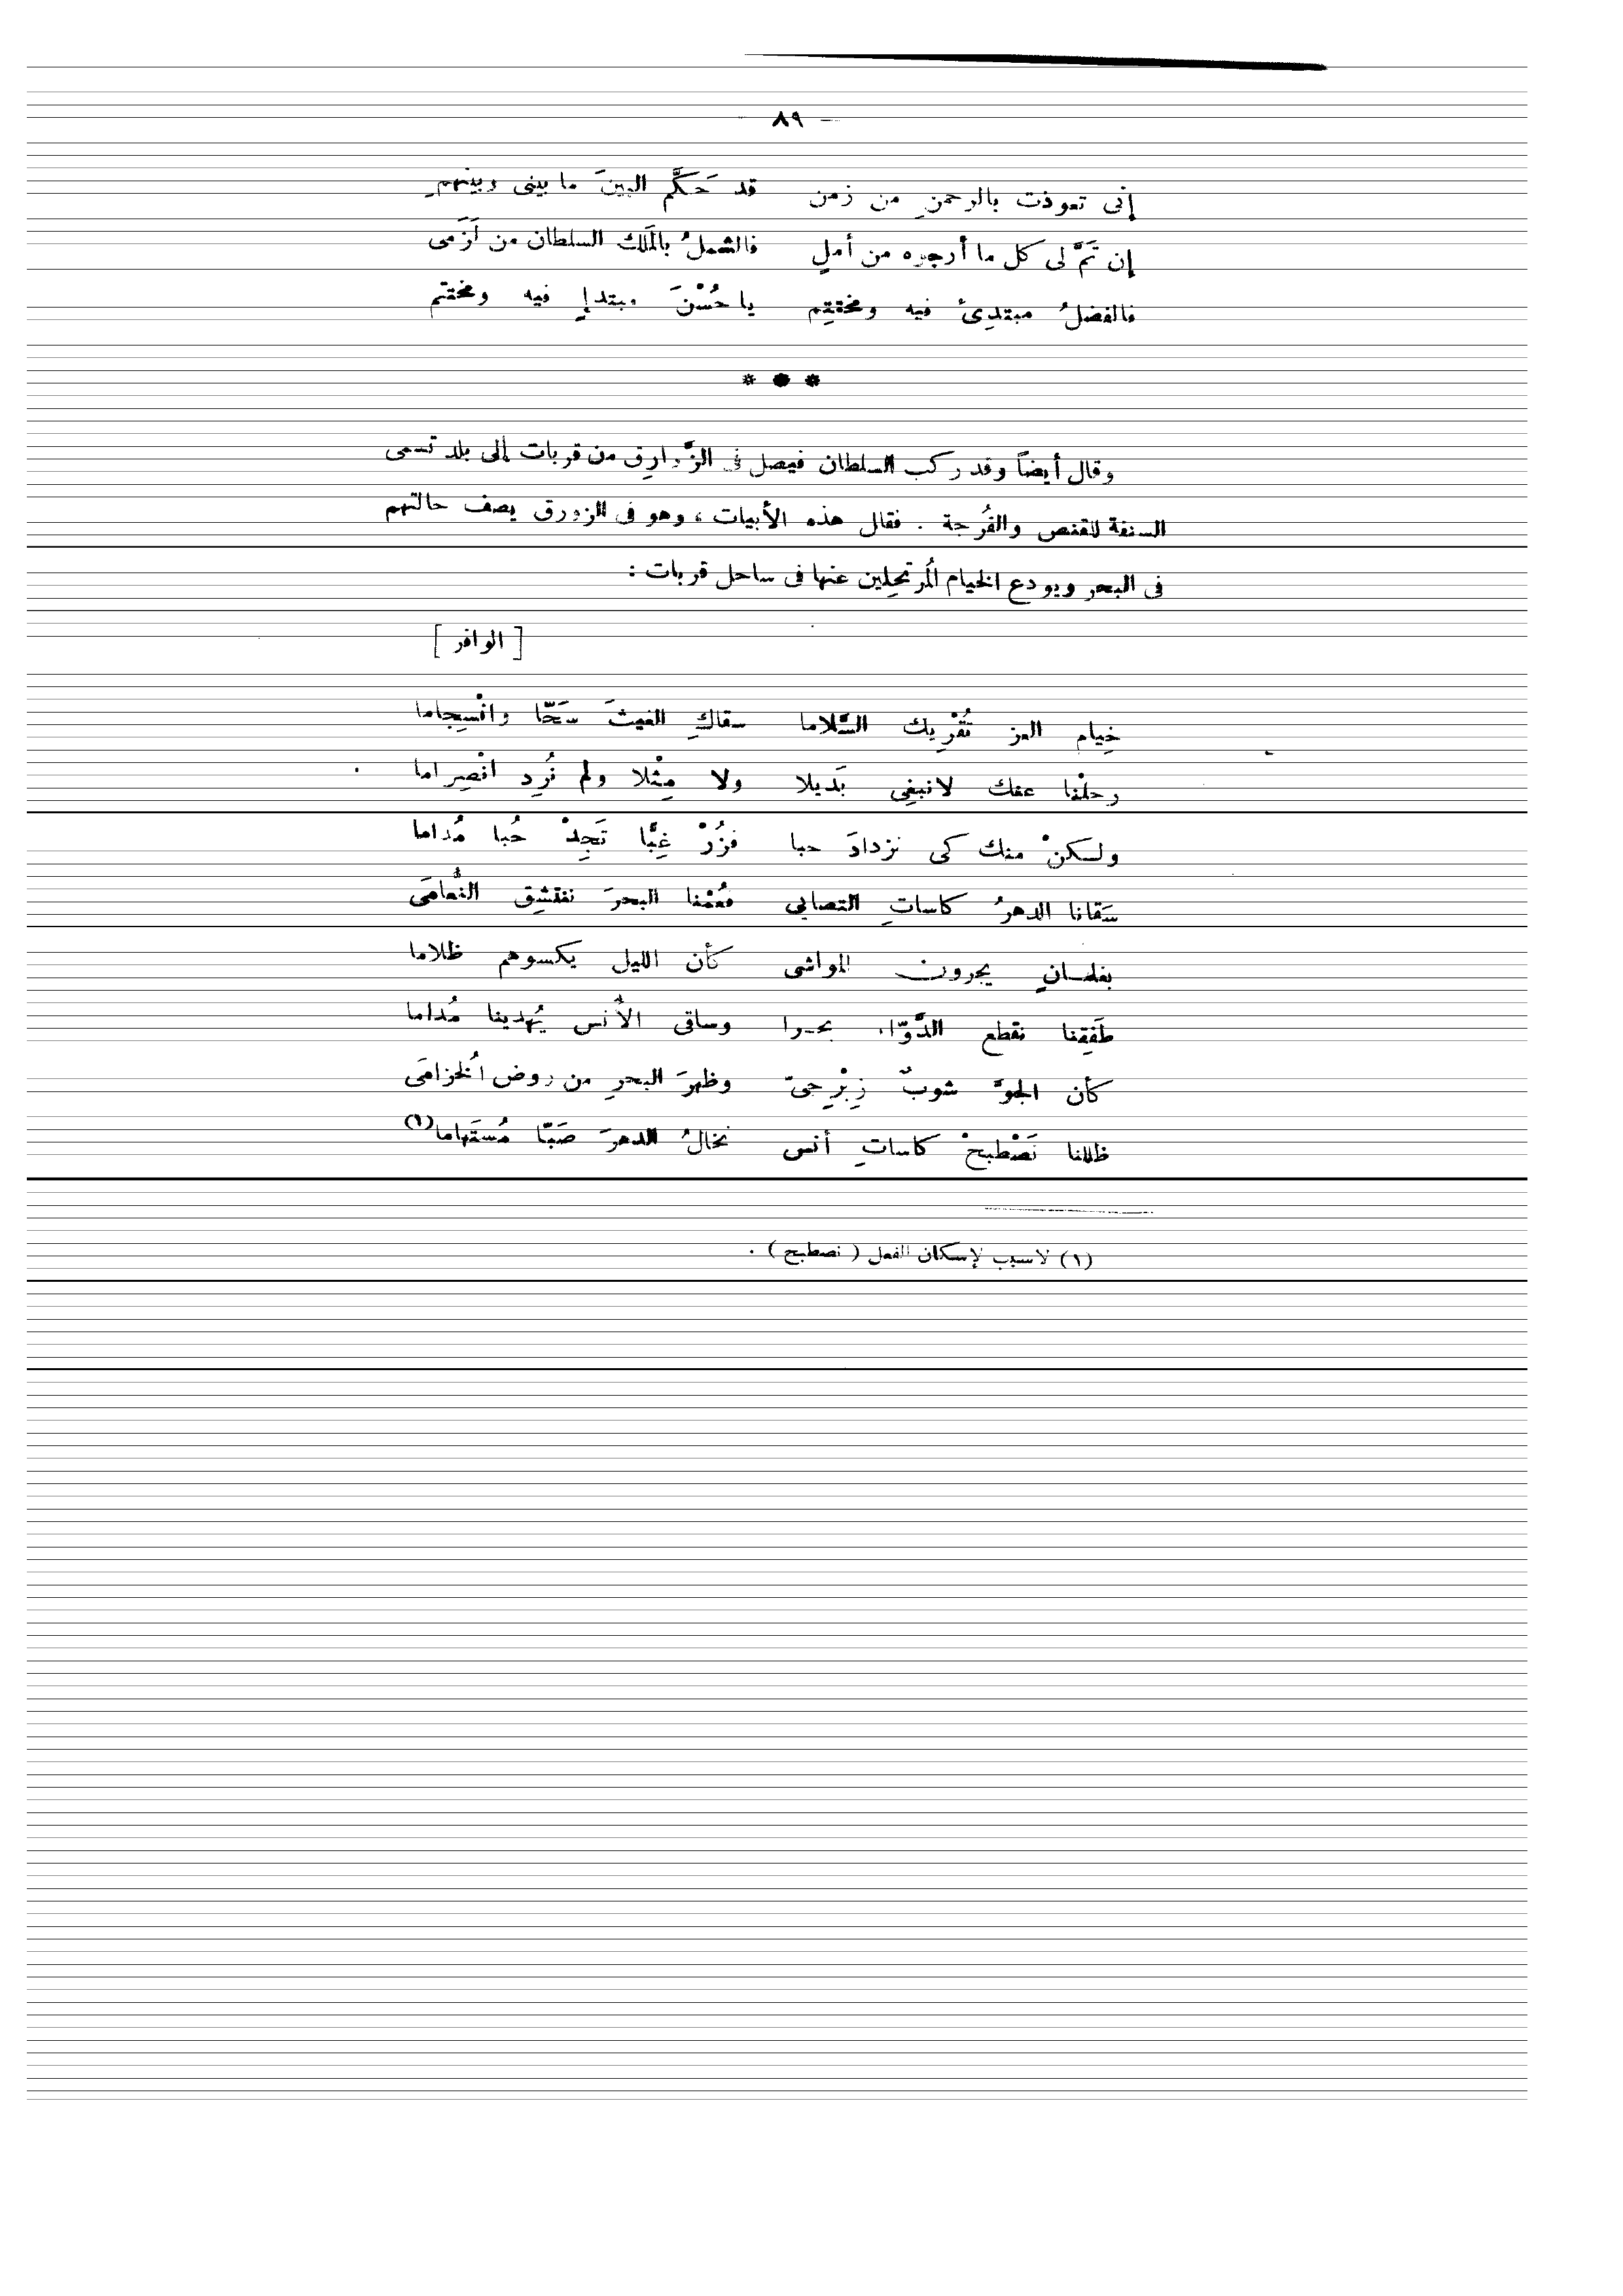 — ٨٩ —
إنى تعوذت بالرحمنِ من زمن قد حَكَّم البينَ ما بينى وبينهمِ
إن تَمَّ لى كل ما أرجوه من أملٍ فالشملُ بالمَلك السلطان من لَزَمى
فالفضلُ مبتدِئ فيه ومختتِم يا حُسْنَ مبتدإٍ فيه ومختتم
* * *
وقال أيضاً وقد ركب السلطان فيصل فى الزَّوارِق من قريات إلى بلد تسمى
السنفة للقنص والفُرجة . فقال هذه الأبيات ، وهو فى الزورق يصف حالتهم
فى البحر ويودع الخيام المُرتحِلين عنها فى ساحل قريات :
[ الوافر ]
خِيام العز تُقْرِيك السَّلاما سقاكِ الغيثَ سَحَّا وانْسِجاما
رحلْنا عنك لانبغِى بَديلا ولا مِثْلا ولم نُرِد انْصِراما
ولكنْ منك كى نزدادَ حبا فزُرْ غِبًّا تَجِدْ حُبا مُداما
سَقانا الدهرُ كاساتِ التصابى فعُمْنا البحرَ ننتشِق النُّعامَى
بغلمانٍ يجرون المواشى كأن الليل يكسوهم ظلاما
طَفَقِنا نقطع الدَّوّاء بحرا وساقى الأُنس يُهدينا مُداما
كأن الجوَّ شوبٌ زِبْرِجىّ وظهرَ البحرِ من روض الُخزامَى
ظللنا نَصْطبحْ كاساتِ أنس نخالُ الدهرَ صَبًّا مُستَهاما(١)
(١) لاسبب لإسكان الفعل ( نصطبح ) .